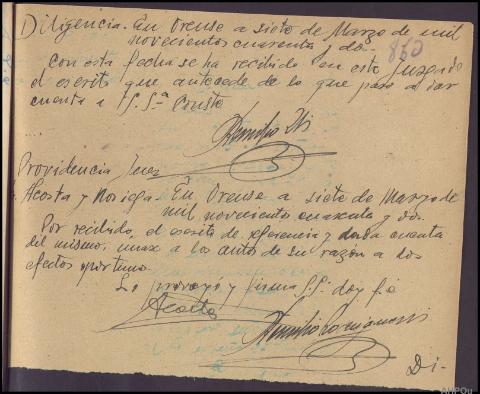 Diligencia. En Orense a siete de Marzo de mil
novecientos cuarenta y do-
860
con esta fecha se ha recibido en este Juzgado
el escrito que antecede de lo que paso a dar
cuenta a Sª. Sª Consta
Providencia Juez
Acosta y Noriega. En Orense a siete de Marzo de
mil novecientos cuarenta y do-
Por recibido, el escrito de referencia y dada cuenta
del mismo, unase a los autos de su razón a los
efectos oportunos.
Lo proveyo y firma S.Sª doy fé
Acosta
Di-
AHPOu